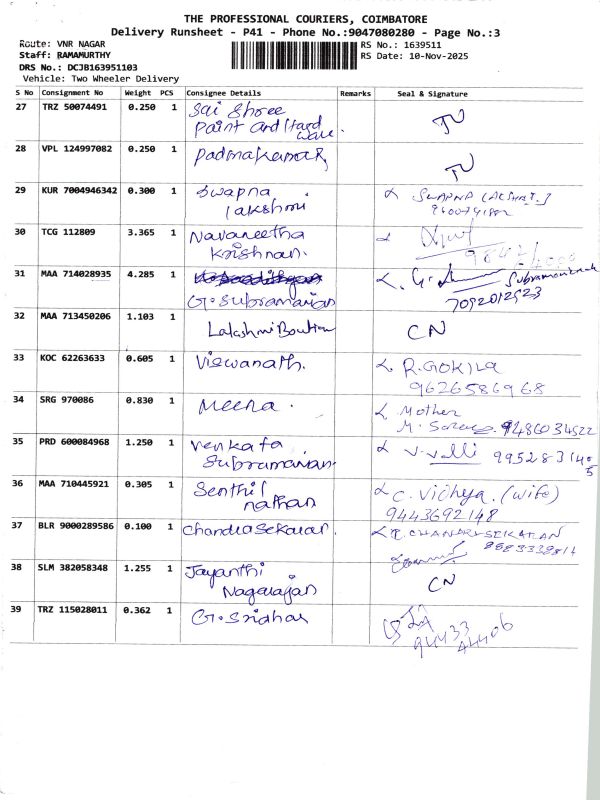 THE PROFESSIONAL COURIERS, COIMBATORE
Delivery Runsheet - P41 - Phone No.:9047080280 - Page No.:3
Route: VNR NAGAR
RS No.: 1639511
Staff: RAMAMURTHY
RS Date: 10-Nov-2025
DRS No.: DCJB163951103
Vehicle: Two Wheeler Delivery
S No Consignment No Weight PCS Consignee Details Remarks Seal & Signature
27 TRZ 50074491 0.250 1 Sai Shree
Paint And Hard
ware.
28 VPL 124997082 0.250 1 Padmakumar
29 KUR 7004946342 0.300 1 Swapna
lakshmi
SWAPNA
30 TCG 112809 3.365 1 Navaneetha
Krishnan.
31 MAA 714028935 4.285 1
G. Subramanian
7092012523
32 MAA 713450206 1.103 1 Lakshmi Boutique CN
33 KOC 62263633 0.605 1 Viswanath. R. GOKILA
9626586968
34 SRG 970086 0.830 1 Meena. Mother
9486034522
35 PRD 600084968 1.250 1 Venkata
Subramanian.
V. Valli 9952831405
36 MAA 710445921 0.305 1 Senthil
nathan
C. Vidhya. (wife)
9443692148
37 BLR 9000289586 0.100 1 Chandrasekaran. R. CHANDRASEKARAN
38 SLM 382058348 1.255 1 Jayanthi
Nagarajan
CN
39 TRZ 115028011 0.362 1 G. Sridhar
94433
44406